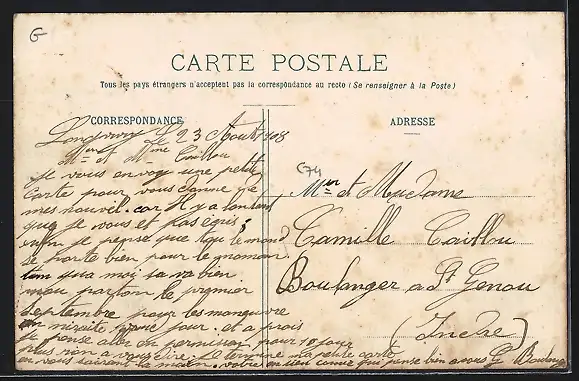 G
CARTE POSTALE
Tous les pays étrangers n'acceptent pas la correspondance au recto (Se renseigner à la Poste)
CORRESPONDANCE
le 23 Aout 1908
Mr et Mme Caillou
je vous envoy une petit
carte pour vous donne de
mes nouvel. car il y a lontant
que je vous et pas écris
enfin je pense que tou le monde
se porte bien pour le moman
tan qua moi sa va bien
nou parton le premier
septembre pour les manoeuvre
jour. et aprais
je pense aler en permision pour 10 jour
plus rien a vous dire. Je termine ma petite carte
en vous la main. votre ami qui pense bien a vous G Boulang
ADRESSE
C74
Mr et Madame
Camille Caillou
Boulanger a St Genou
(Indre)